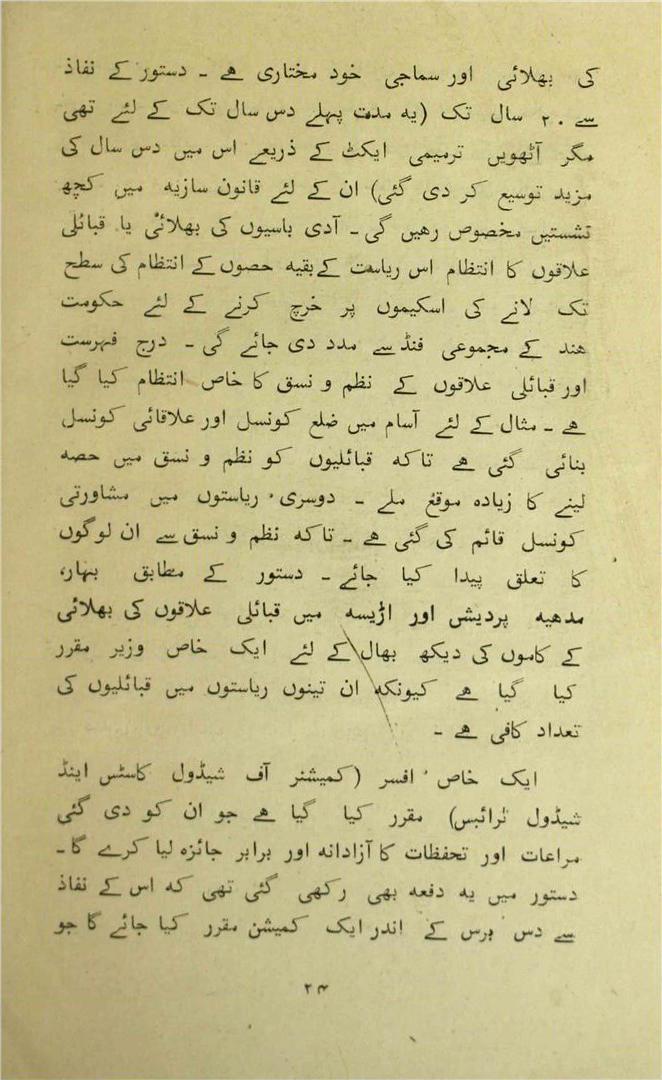 کی بھلائی اور سماجی خود مختاری ھے ۔ دستور کے نفاذ
سے ۲۰ سال تک (یہ مدت پہلے دس سال تک کے لئے تھی
مگر آٹھویں ترمیمی ایکٹ کے ذریعے اس میں دس سال کی
مزید توسیع کر دی گئی) ان کے لئے قانون سازیہ میں کچھ
نشستیں مخصوص رھیں گی ۔ آدی باسیوں کی بھلائی یا قبائلی
علاقوں کا انتظام اس ریاست کے بقیہ حصوں کے انتظام کی سطح
تک لانے کی اسکیموں پر خرچ کرنے کے لئے حکومت
ھند کے مجموعی فنڈ سے مدد دی جائے گی ۔ درج فہرست
اور قبائلی علاقوں کے نظم و نسق کا خاص انتظام کیا گیا
ھے ۔ مثال کے لئے آسام میں ضلع کونسل اور علاقائی کونسل
بنائی گئی ھے تاکہ قبائلیوں کو نظم و نسق میں حصہ
لینے کا زیادہ موقع ملے ۔ دوسری ریاستوں میں مشاورتی
کونسل قائم کی گئی ھے ۔ تاکہ نظم و نسق سے ان لوگوں
کا تعلق پیدا کیا جائے ۔ دستور کے مطابق بہار،
مدھیہ پردیش اور اڑیسہ میں قبائلی علاقوں کی بھلائی
کے کاموں کی دیکھ بھال کے لئے ایک خاص وزیر مقرر
کیا گیا ھے کیونکہ ان تینوں ریاستوں میں قبائلیوں کی
تعداد کافی ھے ۔
ایک خاص افسر (کمیشنر آف شیڈول کاسٹس اینڈ
شیڈول ٹرائبس) مقرر کیا گیا ھے جو ان کو دی گئی
مراعات اور تحفظات کا آزادانہ اور برابر جائزہ لیا کرے گا ۔
دستور میں یہ دفعہ بھی رکھی گئی تھی کہ اس کے نفاذ
سے دس برس کے اندر ایک کمیشن مقرر کیا جائے گا جو
۲۴